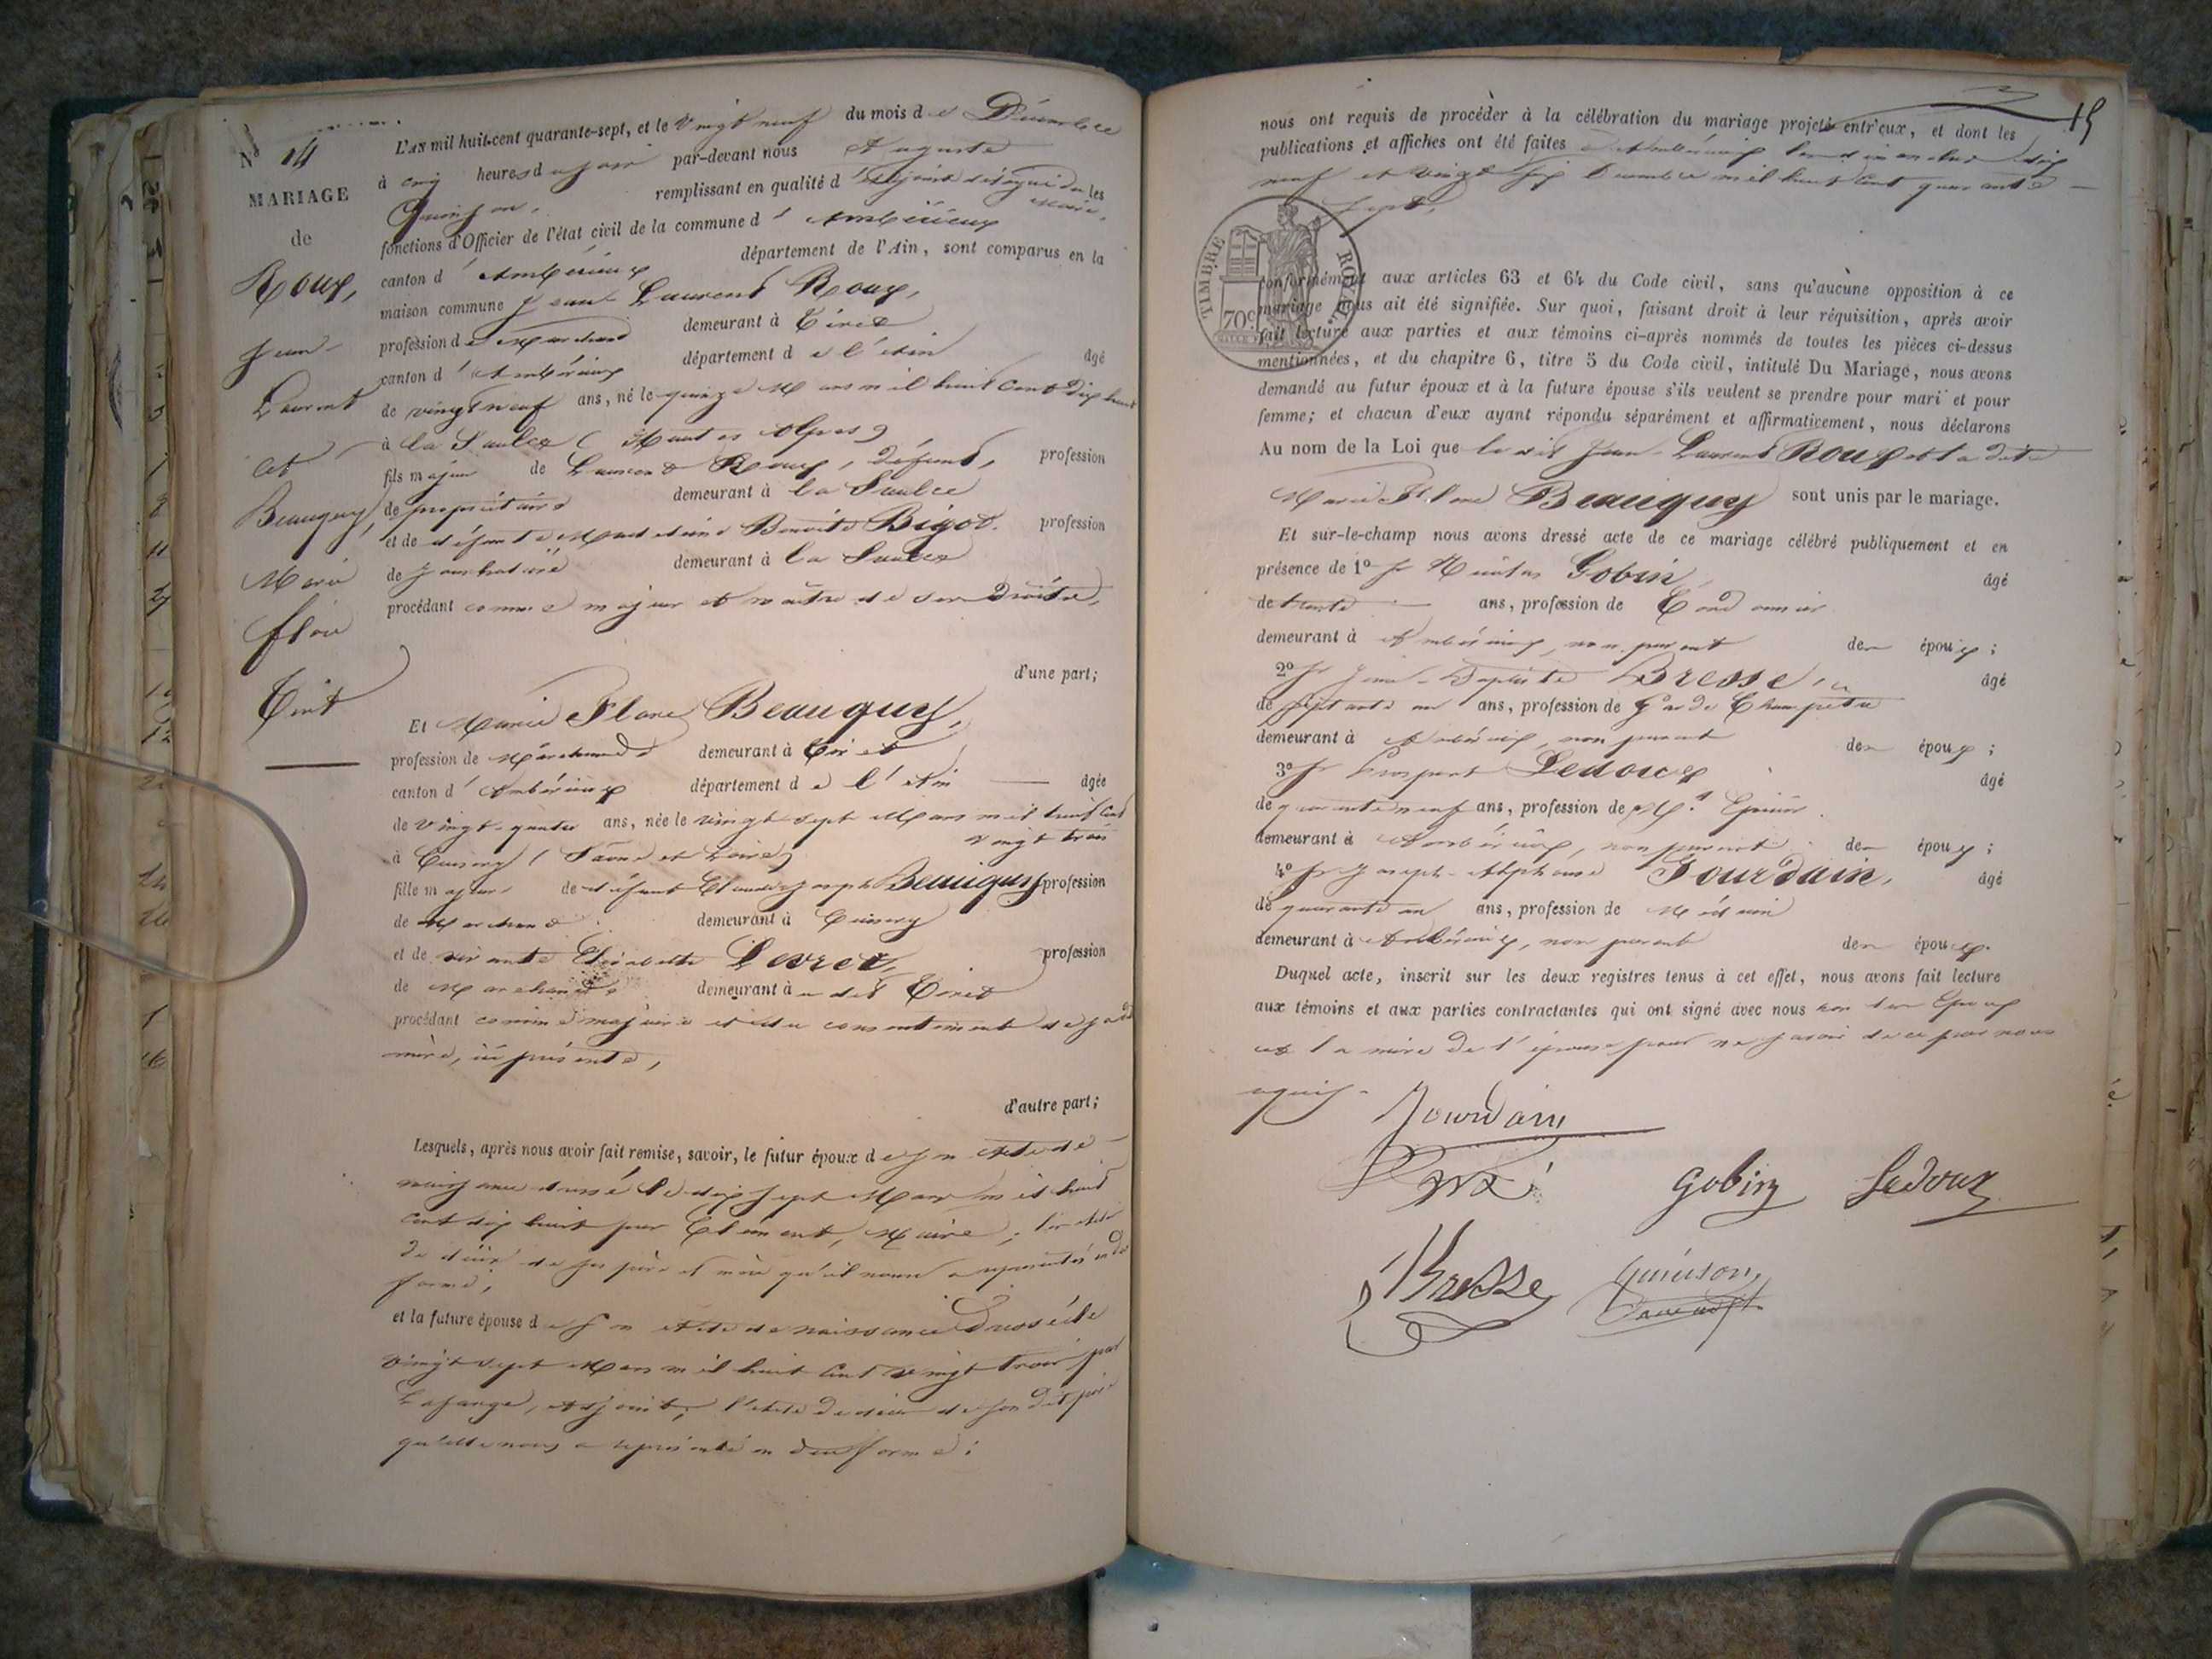 N° 14
MARIAGE
de
Roux,
Jean-
Laurent
et
Beauquy,
Marie
flore
Tiret
L'AN mil huit-cent quarante-sept, et le Vingt neuf du mois de Décembre
à cinq heures du soir par-devant nous Auguste
Quinson, remplissant en qualité d'adjoint délégué du Maire, les
fonctions d'Officier de l'état civil de la commune d'Ambérieux
canton d'Ambérieux département de l'Ain, sont comparus en la
maison commune Jean Laurent Roux,
profession de Marchand demeurant à Tiret
canton d'Ambérieux département de l'Ain âgé
de vingt neuf ans, né le quinze Mars mil huit cent dix huit
à la Saulce (Hautes Alpes)
fils majeur de Laurent Roux, défunt, profession
de propriétaire demeurant à la Saulce
et de défunte Magdeleine Benoite Bigot. profession
de demeurant à la Saulce
procédant comme majeur et maître de ses droits,
d'une part;
Et Marie Flore Beauquy,
profession de Marchande demeurant à Tiret
canton d'Ambérieux département de l'Ain âgée
de Vingt-quatre ans, née le vingt sept Mars mil huit cent
vingt trois
à Cuisery (Saône et Loire)
fille majeure de défunt Claude Joseph Beauquy profession
de Marchand demeurant à Cuisery
et de vivante Elisabeth Levret, profession
de Marchande demeurant à dit Tiret
procédant comme majeure et du consentement de sa dte
mère, ici présente,
d'autre part;
Lesquels, après nous avoir fait remise, savoir, le futur époux de son Acte de
naissance dressé le dix sept Mars mil huit
cent dix huit par Clément, Maire; les actes
de décès de ses père et mère qu'il nous a représentés en due
forme;
et la future épouse de son Acte de naissance Dressé le
vingt sept Mars mil huit cent vingt trois par
Lafarge, Adjoint; l'acte de décès de son dit père
qu'elle nous a représenté en due forme;
15
nous ont requis de procéder à la célébration du mariage projeté entr'eux, et dont les
publications et affiches ont été faites à Ambérieux les dimanches dix
neuf et vingt six Décembre mil huit cent quarante
sept,
TIMBRE ROYAL
70c
conformément aux articles 63 et 64 du Code civil, sans qu'aucune opposition à ce
mariage nous ait été signifiée. Sur quoi, faisant droit à leur réquisition, après avoir
fait lecture aux parties et aux témoins ci-après nommés de toutes les pièces ci-dessus
mentionnées, et du chapitre 6, titre 5 du Code civil, intitulé Du Mariage, nous avons
demandé au futur époux et à la future épouse s'ils veulent se prendre pour mari et pour
femme; et chacun d'eux ayant répondu séparément et affirmativement, nous déclarons
Au nom de la Loi que le dit Jean-Laurent Roux et la dite
Marie Flore Beauquy sont unis par le mariage.
Et sur-le-champ nous avons dressé acte de ce mariage célébré publiquement et en
présence de 1° Sr Nicolas Gobin, âgé
de trente ans, profession de Cordonnier
demeurant à Ambérieux, non parent des époux;
2° Sr Jean-Baptiste Bresse, âgé
de septante un ans, profession de Garde Champêtre
demeurant à Ambérieux, non parent des époux;
3° Sr Prospert Ledoux âgé
de quarante neuf ans, profession de Md Epicier
demeurant à Ambérieux, non parent des époux;
4° Sr Joseph-Alphonse Jourdain, âgé
de quarante un ans, profession de Médecin
demeurant à Ambérieux, non parent des époux.
Duquel acte, inscrit sur les deux registres tenus à cet effet, nous avons fait lecture
aux témoins et aux parties contractantes qui ont signé avec nous non les Epoux
et la mère de l'épouse pour ne savoir de ce par nous
requis.
Jourdain
Gobin Ledoux
Bresse Quinson,